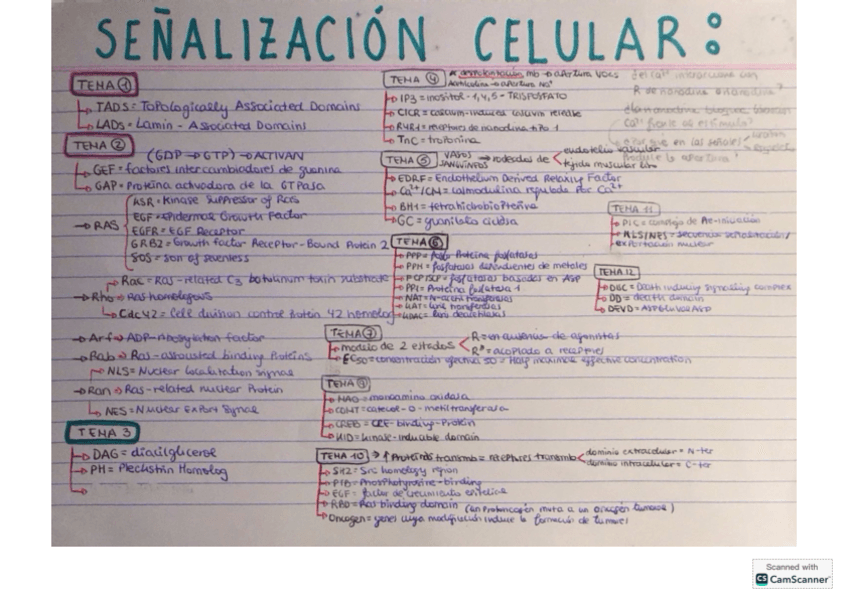 SEÑALIZACIÓN CELULAR:
TEMA 1
TADS = Topologically Associated Domains
LADs = Lamin - Associated Domains
TEMA 2
(GDP → GTP) → ACTIVAN
GEF = factores intercambiadores de guanina
GAP = Proteína activadora de la GTPasa
RAS
KSR = Kinase Suppressor of Ras
EGF = Epidermal Growth Factor
EGFR = EGF Receptor
GRB2 = Growth factor Receptor - Bound Protein 2
SOS = Son of sevenless
Rac = Ras-related C3 botulinum toxin substrate
Rho = Ras homologous
Cdc42 = Cell division control protein 42 homolog
Arf → ADP-ribosylation factor
Rab → Ras-associated binding Proteins
NLS = Nuclear Localitation Signal
Ran → Ras-related nuclear Protein
NES = Nuclear Export Signal
TEMA 3
DAG = diacilglicerol
PH = Pleckstrin Homolog
TEMA 4
mb → apertura VOCs
→ apertura Na+
IP3 = inositol - 1,4,5 - TRISFOSFATO
CICR = calcium-induced calcium release
RYR1 = receptores de rianodina tipo 1
TnC = troponina
TEMA 5
VASOS SANGUÍNEOS → rodeados de
endotelio vascular
tejido muscular liso
EDRF = Endothelium Derived Relaxing Factor
Ca2+/CM = calmodulina regulada por Ca2+
BH4 = tetrahidrobiopterina
GC = guanilato ciclasa
TEMA 6
PPP = fosfo Proteína fosfatasas
PPM = fosfatasas dependientes de metales
FCP/SCP = fosfatasas basadas en ASP
PP1 = Proteína fosfatasa 1
NAT = N-acetil transferasas
KAT = Lys transferasas
KDAC = Lys deacetilasas
TEMA 7
modelo de 2 estados
R = en ausencia de agonistas
R* = acoplado a receptores
EC50 = concentración efectiva 50 = Half maximal effective concentration
TEMA 9
MAO = monoamina oxidasa
COMT = catecol-O-metiltransferasa
CREB = CRE-binding-Protein
KID = kinase-inducible domain
TEMA 10 → 1 Proteínas transmb = receptores transmb
dominio extracelular = N-ter
dominio intracelular = C-ter
SH2 = Src homology region
PTB = Phosphotyrosine-binding
EGF = factor de crecimiento epitelial
RBD = Ras binding domain (en Protooncogén muta a un oncogén tumoral)
Oncogen = genes cuya modificación induce la formación de tumores
TEMA 11
PIC = complejo de Pre-iniciación
NLS/NES = secuencia señalización/
exportación nuclear
TEMA 12
DISC = Death inducing signalling complex
DD = death domain
DEVD = ASP GLU VAL ASP
Scanned with
CS CamScanner